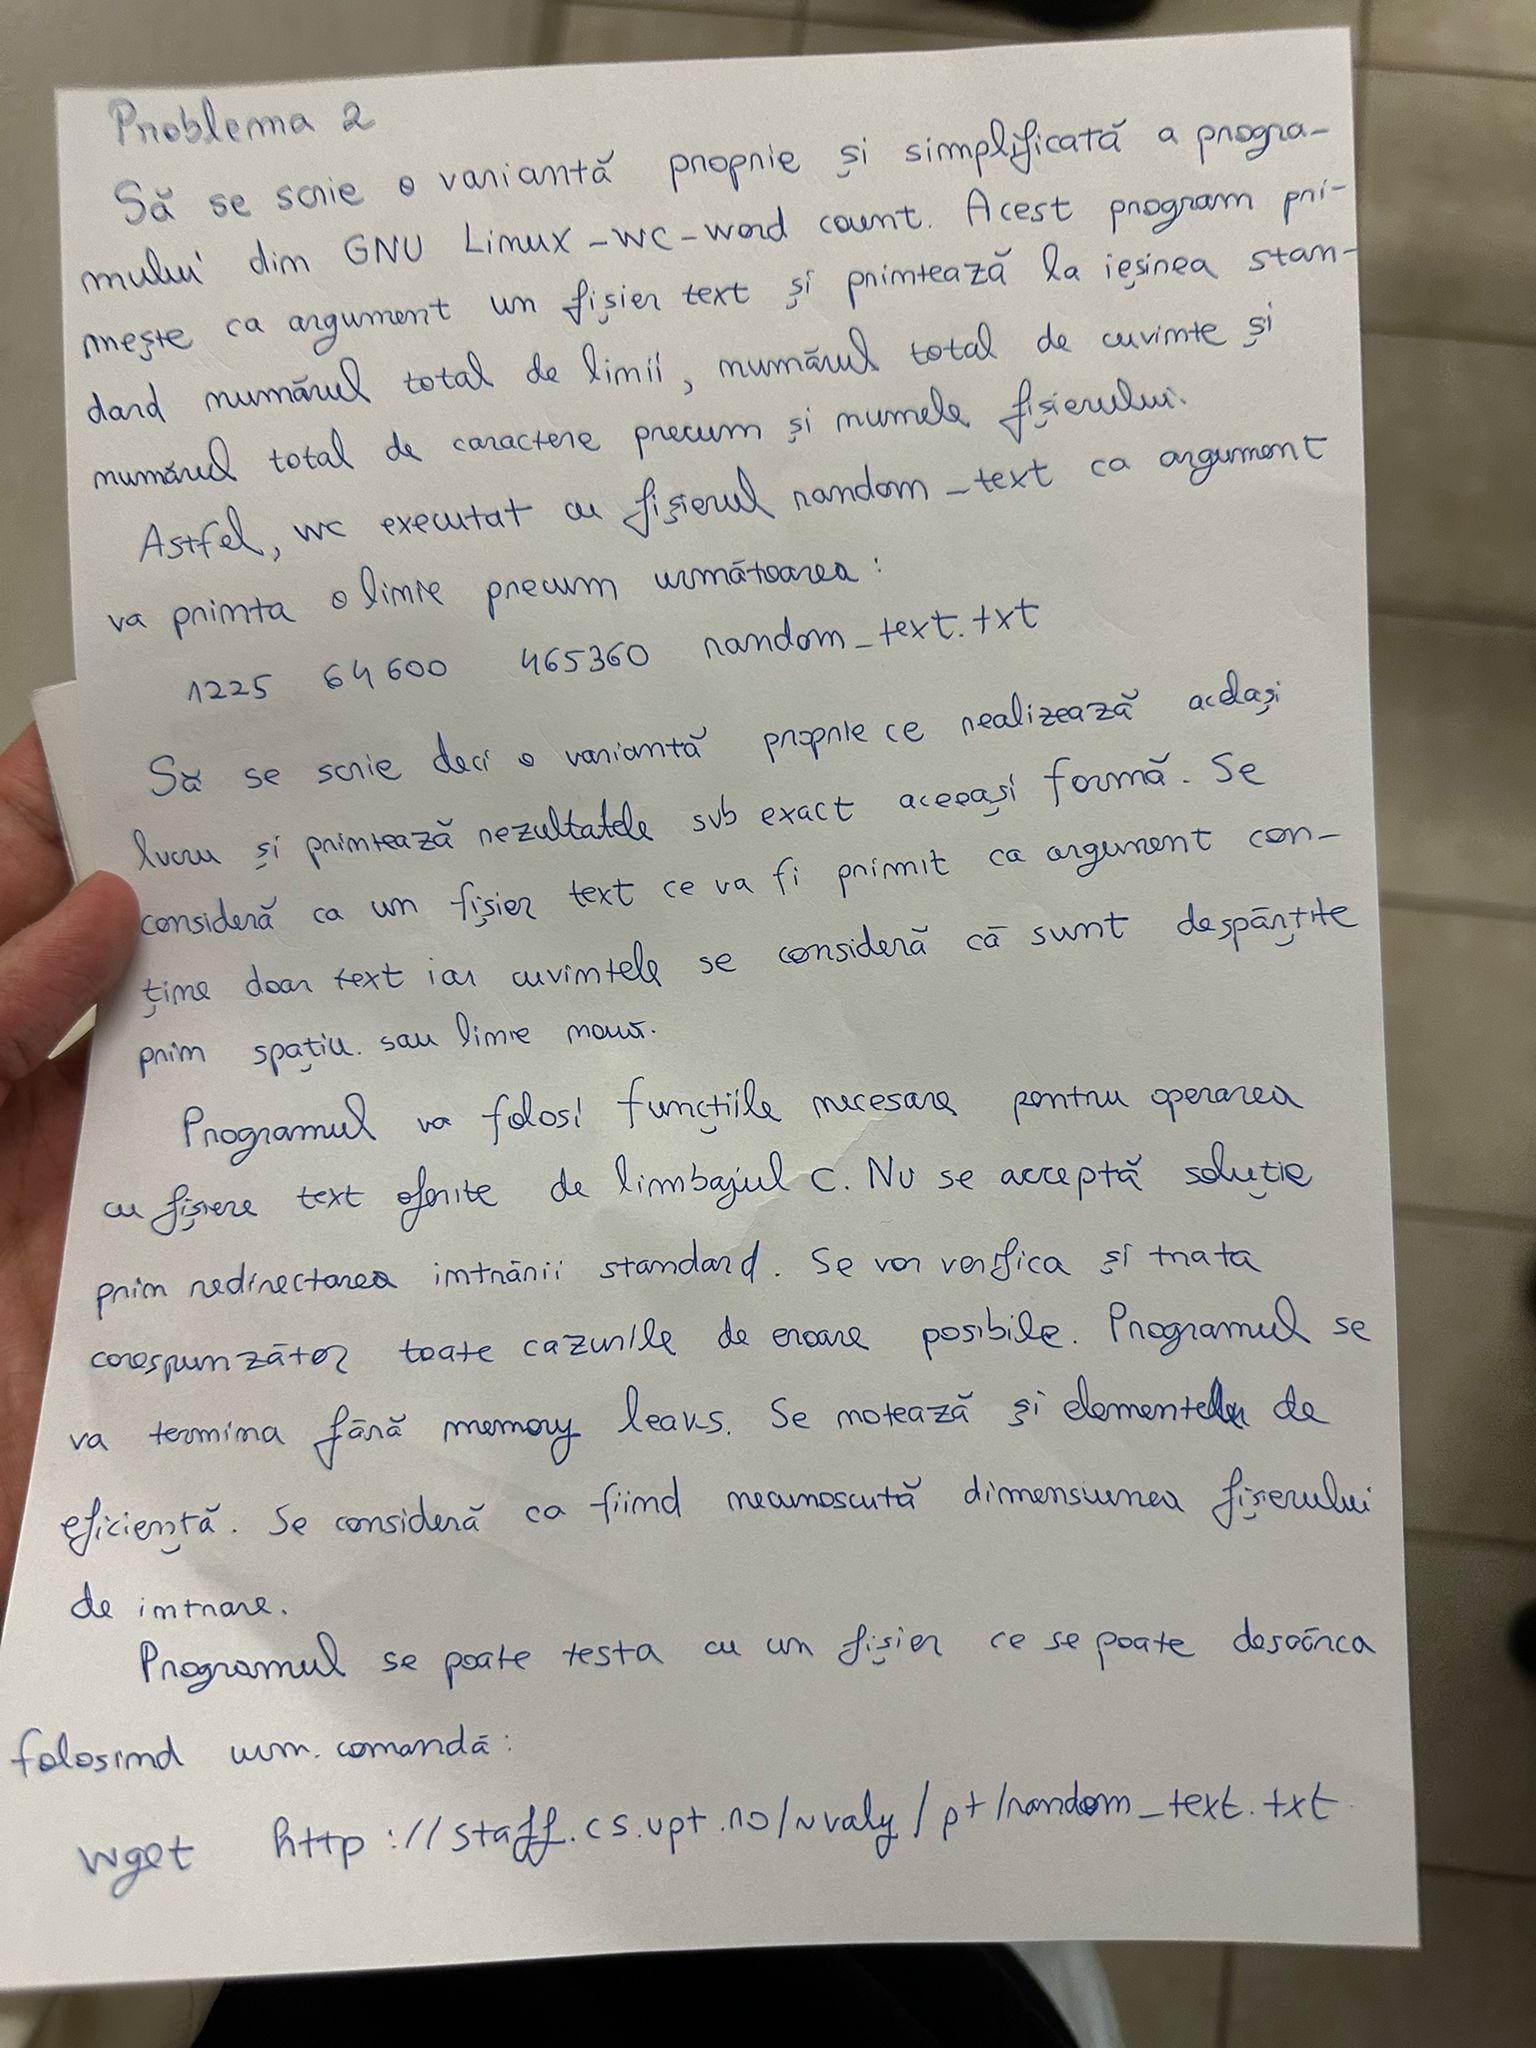 Problema 2
Să se scrie o variantă proprie și simplificată a progra-
mului din GNU Linux - wc - word count. Acest program pri-
mește ca argument un fișier text și printează la ieșirea stan-
dard numărul total de linii, numărul total de cuvinte și
numărul total de caractere precum și numele fișierului.
Astfel, wc executat cu fișierul random_text ca argument
va printa o linie precum următoarea:
1225 64600 465360 random_text.txt
Să se scrie deci o variantă proprie ce realizează același
lucru și printează rezultatele sub exact aceeași formă. Se
consideră ca un fișier text ce va fi primit ca argument con-
ține doar text iar cuvintele se consideră că sunt despărțite
prim spațiu. sau linie nouă.
Programul va folosi funcțiile necesare pentru operarea
cu fișiere text oferite de limbajul C. Nu se acceptă soluție
prin redirectarea intrării standard. Se vor verifica și trata
corespunzător toate cazurile de eroare posibile. Programul se
va termina fără memory leaks. Se notează și elementele de
eficiență. Se consideră ca fiind necunoscută dimensiunea fișierului
de intrare.
Programul se poate testa cu un fișier ce se poate descărca
folosind urm. comandă:
wget http://staff.cs.upt.ro/~valy/pt/random_text.txt